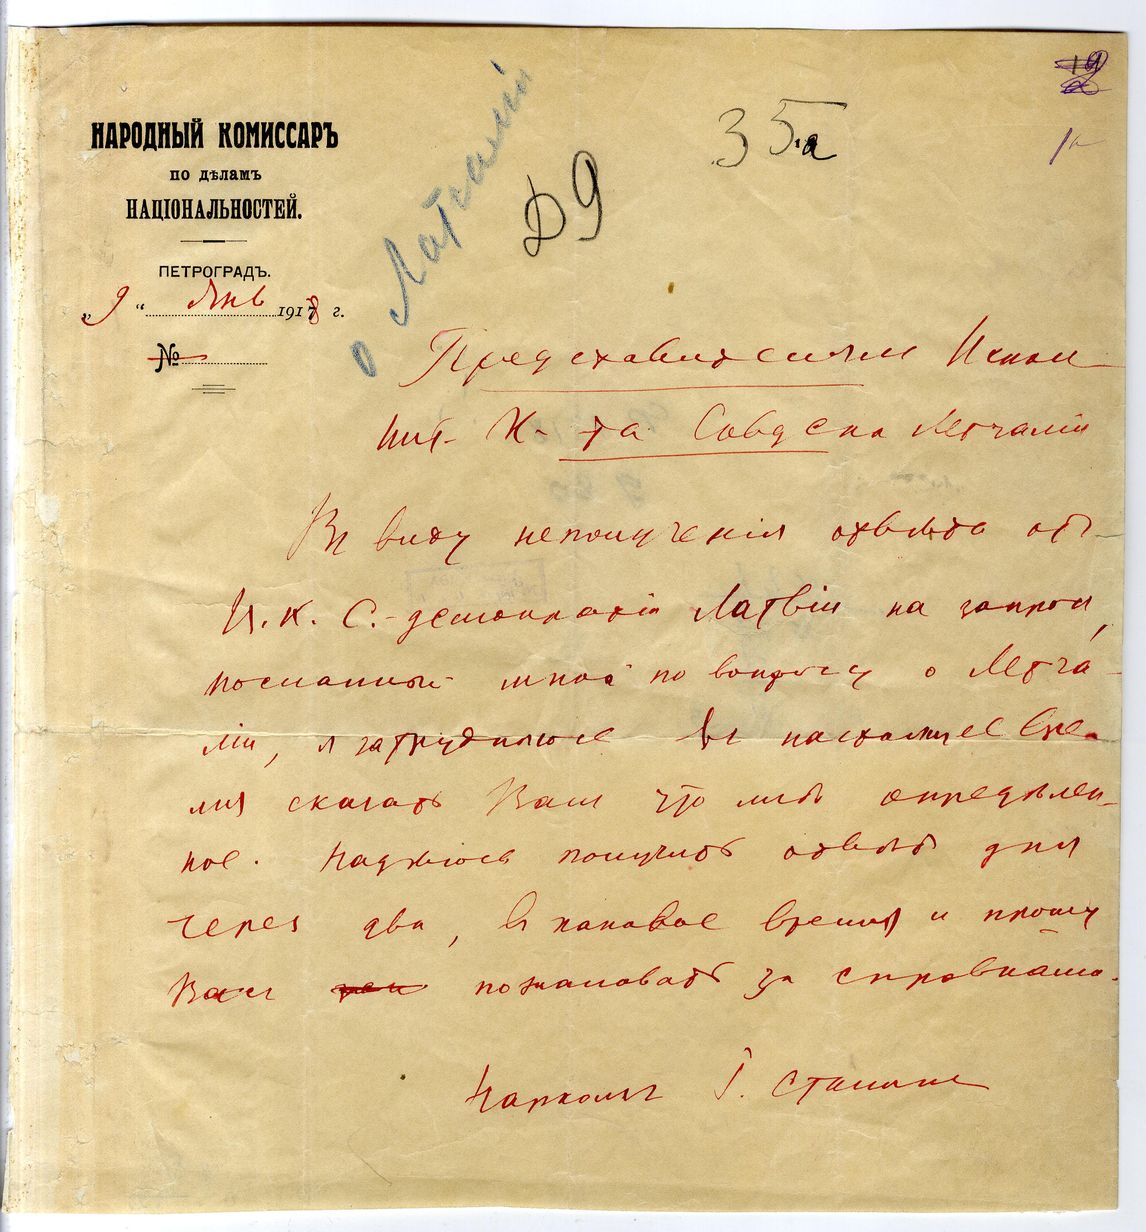 НАРОДНЫЙ КОМИССАРЪ
ПО ДѢЛАМЪ
НАЦІОНАЛЬНОСТЕЙ.
ПЕТРОГРАДЪ.
„9“ Янв 1918 г.
№
о Латгаліи
Д9
35а
Представителям Испол
нит- К-та Совдепа Летгаліи
В виду неполученія отвѣта отъ
И. К. С.-демократіи Латвіи на запрос,
посланный мною по вопросу о Летга-
ліи, я затрудняюсь въ настоящее вре-
мя сказать Вам что либо определен-
ное. Надѣюсь получить отвѣтъ дня
через два, в каковое время и прошу
Васъ пожаловать за справками.
Наркомъ І. Сталин